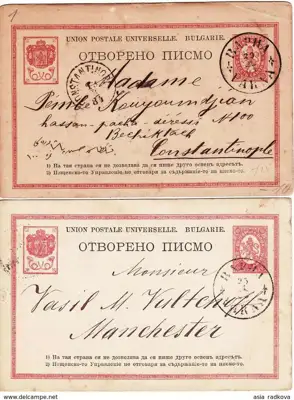 UNION POSTALE UNIVERSELLE. BULGARIE.
ОТВОРЕНО ПИСМО
ВАРНА
CONSTANTINOPLE
Madame
Kouyoumdjian
hassan-pacha-déressi No 100
Bechiktach
Constantinople
1) На тая страна се не дозволява да се пише друго освенъ адресътъ.
2) Пощенско-то Управление не отговаря за съдържание-то на писмо-то.
UNION POSTALE UNIVERSELLE. BULGARIE.
ОТВОРЕНО ПИСМО
Monsieur
Vasil M.
Manchester
1) На тая страна се не дозволява да се пише друго освенъ адресътъ.
2) Пощенско-то Управление не отговаря за съдържание-то на писмо-то.
delcampe.net
asia radkova